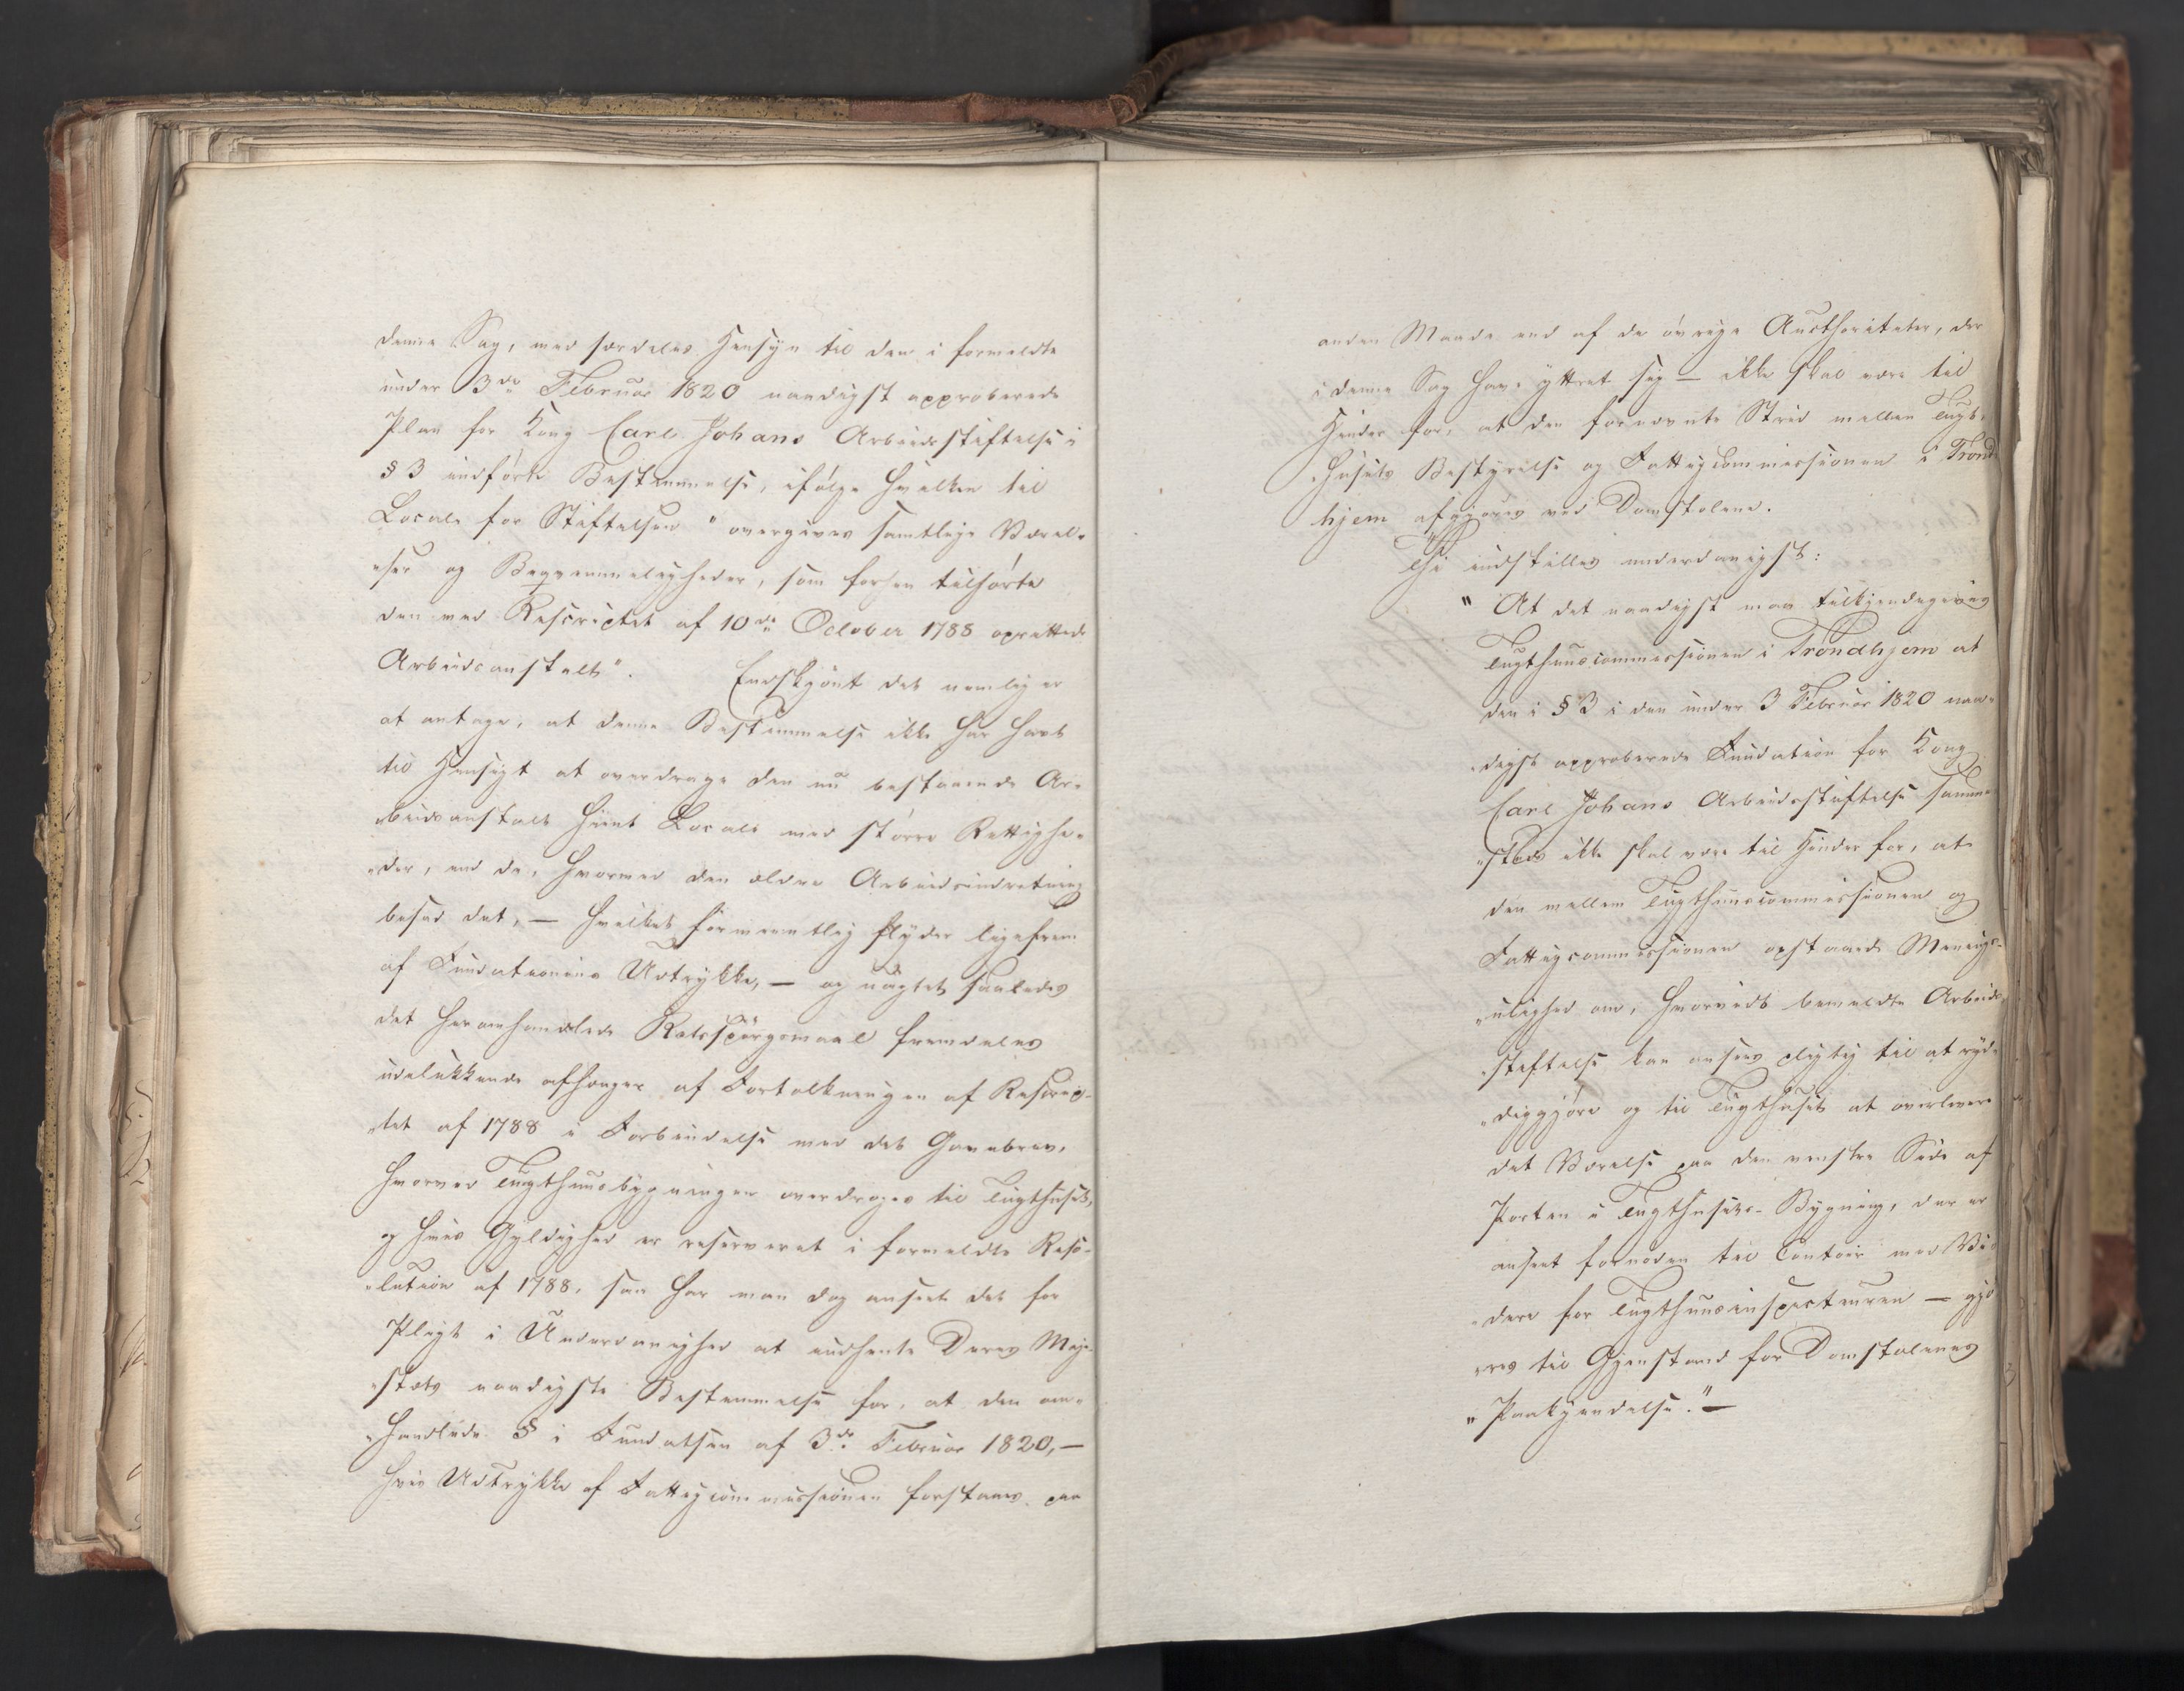 denne Sag, med særdeles Hensyn til den i formeldte
under 3de Februar 1820 naadigst approberede
Plan for Kong Carl Johans Arbeidsstiftelse i
§ 3 indførte Bestemmelse, ifølge hvilken til
Locale for Stiftelsen "overgives samtlige Værel-
"ser og Beqvemmeligheder, som forhen tilhørte
den ved Rescriptet af 10de October 1788 oprettede
Arbeidsanstalt". Endskjönt det nemlig er
at antage, at denne Bestemmelse ikke har havt
til Hensigt at overdrage den nu bestaaende Ar-
beidsanstalt hiint Locale med større Rettighe-
"der, end de, hvormed den ældre Arbeidsindretning
besad det, — hvilket formeentlig flyder ligefrem
af Fundationens Udtrykke, — og uagtet saaledes
det heromhandlede Retsspörgsmaal fremdeles
udelukkende afhænger af Fortolkningen af Rescrip-
"tet af 1788 i Forbindelse med det Gavebrev,
hvorved Tugthuusbygningen overdroges til Tugthuset,
og hvis Gyldighed er reserveret i formeldte Reso-
"lution af 1788, saa har man dog anseet det for
Pligt i Underdanighed at indhente Deres Maje-
"stæts naadigste Bestemmelse for, at den om-
"handlede § i Fundatsen af 3de Februar 1820, —
hvis Udtrykke af Fattigcommissionen forstaaes paa
anden Maade end af de övrige Aucthoriteter, der
i denne Sag have yttret sig — ikke skal være til
Hinder for, at den fornævnte Strid mellem Tugt-
"husets Bestyrelse og Fattigcommissionen i Trond
hjem afgjøres ved Domstolene.
Thi indstilles underdanigst:
" At det naadigst maa tilkjendegives
Tugthuuscommissionen i Trondhjem at
den i § 3 i den under 3 Februar 1820 naa-
"digst approberede Fundation for Kong
Carl Johans Arbeidsstiftelse samme-
"steds ikke skal være til Hinder for, at
den mellem Tugthuuscommissionen og
Fattigcommissionen opstaaede Menings-
"ulighed om, hvorvidt bemeldte Arbeids-
"stiftelse kan ansees pligtig til at ryd-
"diggjøre og til Tugthuset at overlevere
det Værelse paa den venstre Side af
Porten i Tugthusets-Bygning, der er
anseet fornøden til Contoir med Vi
"dere for Tugthuusinspecteuren — gjö
"res til Gjenstand for Domstolenes
" Paakjendelse." —